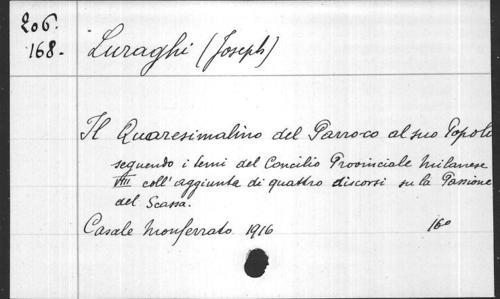 206.
168.
Luraghi (Joseph)
Il Quaresimalino del Parroco al suo Popolo
seguendo i temi del Concilio Provinciale Milanese
VIII coll'aggiunta di quattro discorsi su la Passione
del Scassa.
Casale Monferrato 1916 16º